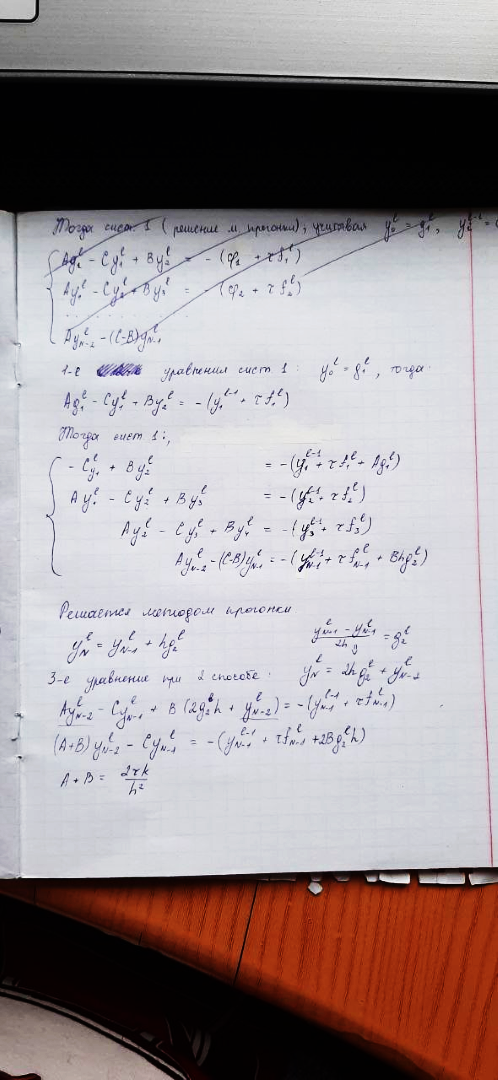 Тогда сист. 1 (решение м. прогонки), учитывая y₀ˡ = g₁ˡ, y₂ˡ⁻¹ =
Ag₁ˡ - Cy₁ˡ + By₂ˡ = - (φ₁ + τf₁ˡ)
Ay₁ˡ - Cy₂ˡ + By₃ˡ = - (φ₂ + τf₂ˡ)
. . . . .
Ayₙ₋₂ˡ - (C-B)yₙ₋₁ˡ
1-е уравнения сист 1: y₀ˡ = g₁ˡ, тогда
Ag₁ˡ - Cy₁ˡ + By₂ˡ = -(y₁ˡ⁻¹ + τf₁ˡ)
Тогда сист 1:,
- Cy₁ˡ + By₂ˡ = -(y₁ˡ⁻¹ + τf₁ˡ + Ag₁ˡ)
Ay₁ˡ - Cy₂ˡ + By₃ˡ = -(y₂ˡ⁻¹ + τf₂ˡ)
Ay₂ˡ - Cy₃ˡ + By₄ˡ = -(y₃ˡ⁻¹ + τf₃ˡ)
Ayₙ₋₂ˡ - (C-B)yₙ₋₁ˡ = -(yₙ₋₁ˡ⁻¹ + τfₙ₋₁ˡ + Bhg₂ˡ)
Решается методом прогонки
yₙˡ = yₙ₋₁ˡ + hg₂ˡ
3-е уравнение при 2 способе: yₙˡ = 2hg₂ˡ +
Ayₙ₋₂ˡ - Cyₙ₋₁ˡ + B(2g₂ˡh + yₙ₋₂ˡ) = -(yₙ₋₁ˡ⁻¹ + τfₙ₋₁ˡ)
(A+B)yₙ₋₂ˡ - Cyₙ₋₁ˡ = -(yₙ₋₁ˡ⁻¹ + τfₙ₋₁ˡ + 2Bg₂ˡh)
A + B = 2τk/h²